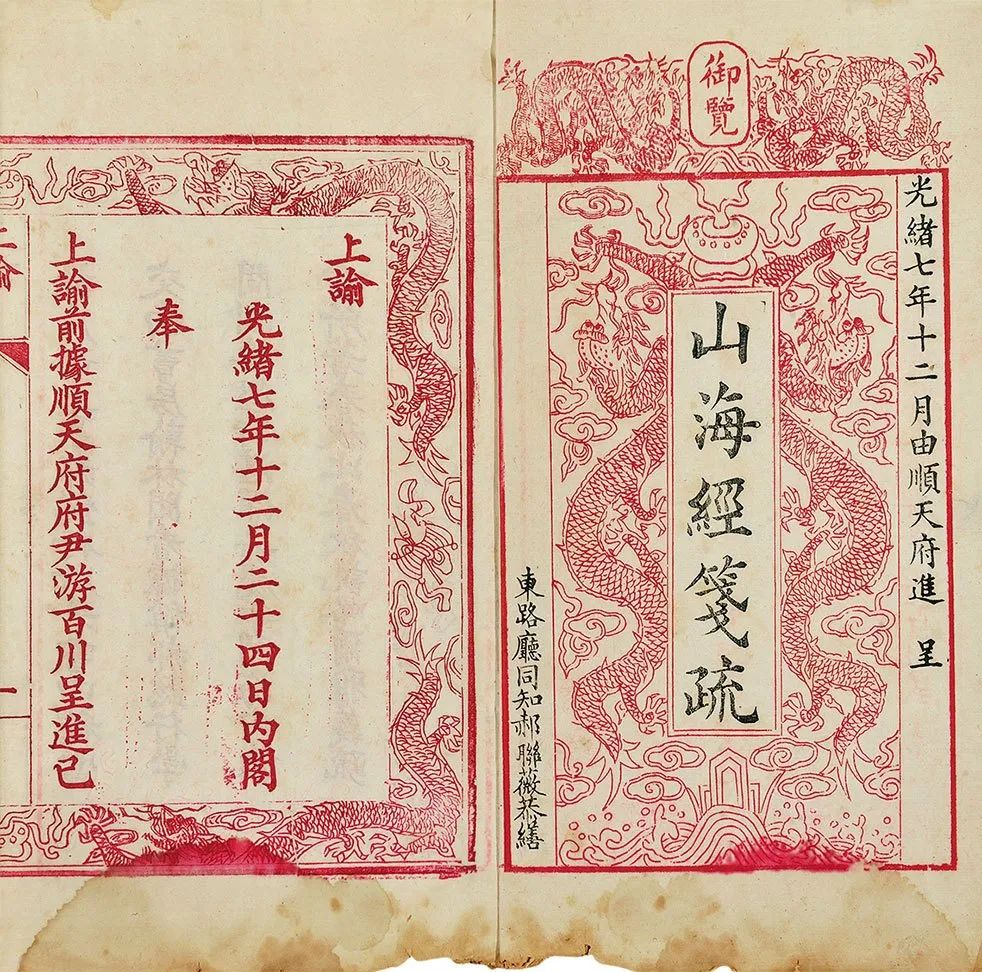 御覽
光緒七年十二月由順天府進呈
山海經箋疏
東路廳同知郝聯薇恭繕
上諭
光緒七年十二月二十四日內閣
奉
上諭前據順天府府尹游百川呈進已
上諭